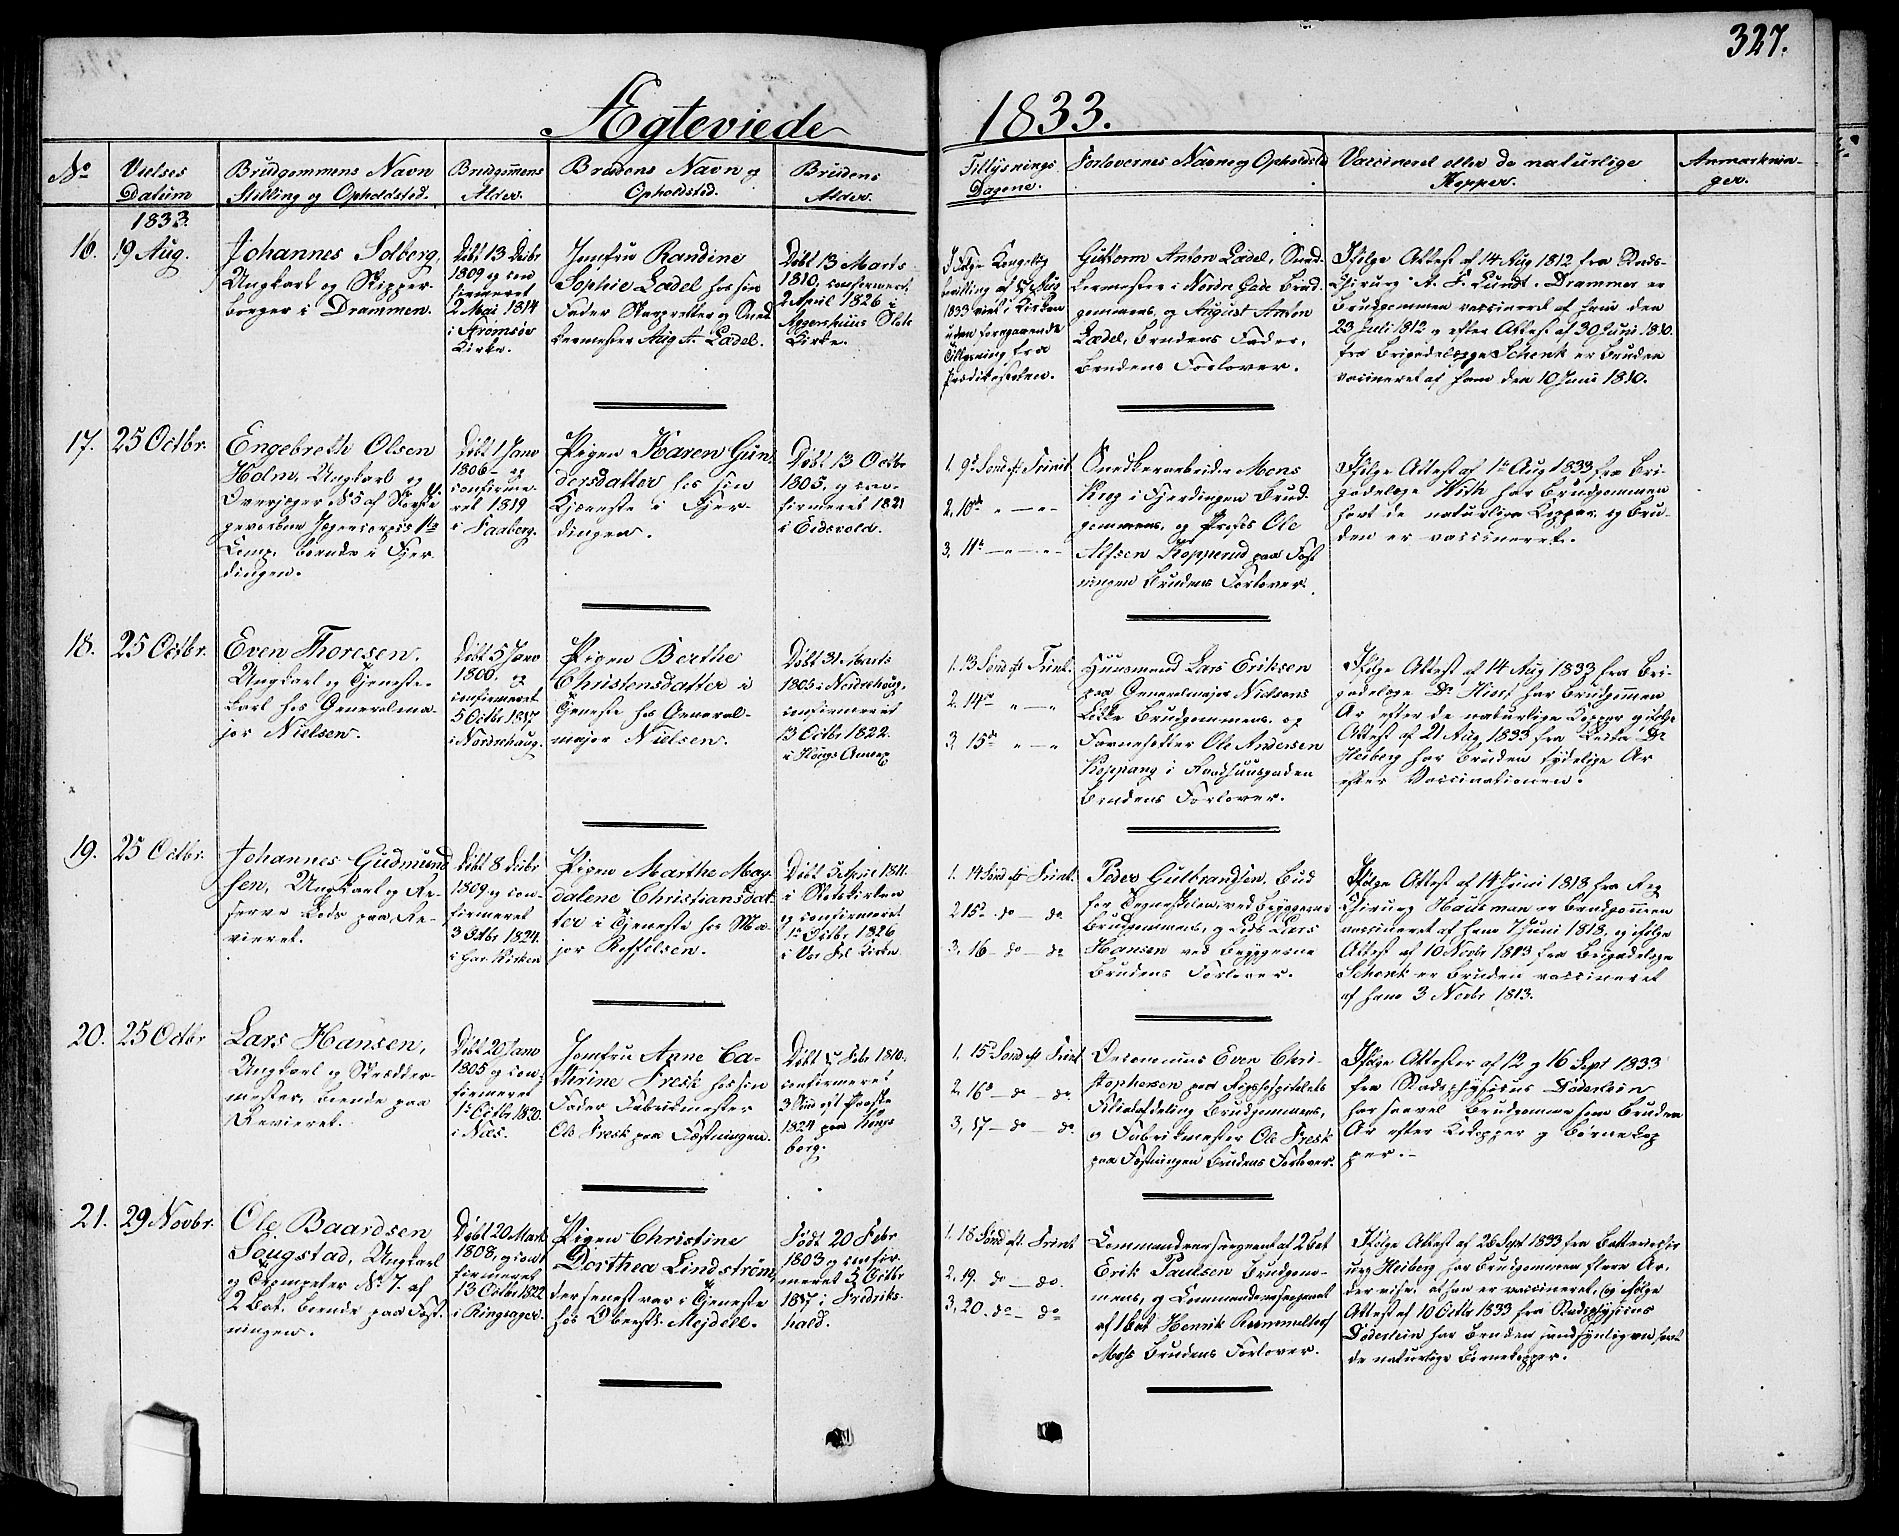 327.
Ægteviede 1833.
No
Vielses Datum
Brudgommens Navn Stilling og Opholdsted.
Brudgommens Alder.
Brudens Navn og Opholdsted.
Brudens Alder.
Tillysnings Dagene.
Forlovernes Navne og Opholdsted
Vaccineret eller de naturlige Kopper.
Anmærkninger.
1833.
16.
19 Aug.
Johannes Solberg,
Ungkarl og Skipper-
borger i Drammen.
Døbt 13 Decbr
1809 og con
firmeret
2 Mai 1814
i Strømsøe
Kirke.
Jomfru Randine
Sophie Ladel hos sin
Fader Skarpretter og Sned
kermester Aug A. Ladel.
Døbt 13 Marts
1810, confirmeret
2 April 1826 i
Aggershuus Slots
Kirke.
I Følge Kongelig
1833 viet i Kirken
uden foregaaende
Tillysning fra
Prædikestolen.
Guttorm Anton Ladel, Sned
kermester i Nordre Gade Brud
gommens, og August Anton
Ladel, Brudens Fader,
Brudens Forlover.
Ifølge Attest af 14 Aug 1812 fra Stads-
Chirurg A. F. Lund i Drammen er
Brudgommen vaccineret af ham den
23 Juli 1812 og efter Attest af 30 Juni 1810.
fra Brigadelæge Schenk er Bruden
vaccineret af ham den 10 Juni 1810.
17.
25 Octbr.
Engebreth Olsen
Holm, Ungkarl og
Overjæger No 5 af Norske
gevorbne Jægercorpses 1ste
Comp. boende i Fjer
dingen.
Døbt 1 Janv
1806 og
confirme-
ret 1819
i Faaberg.
Pigen Karen Gun
dersdatter hos sin
Tjeneste i Fjer-
dingen.
Døbt 13 Octbr
1805, og con-
firmeret 1821
i Eidsvold.
1. 9de Sønd eft Trinit.
2. 10de — " — "
3. 11te — " — "
Snedkerarbeider Mons
Ring i Fjerdingen Brud-
gommens, og Profos Ole
Alfsen Kopperud paa Fæst
ningen Brudens Forlover.
Ifølge Attest af 1ste Aug 1833 fra Bri-
gadelæge With har Brudgommen
havt de naturlige Kopper og Bru-
den er vaccineret.
18.
25 Octbr.
Even Thoresen.
Ungkarl og Tjeneste-
karl hos Generalma-
jor Nielsen.
Døbt 5 Janv
1800. og
confirmeret
5 Octbr 1817
i Nordrehaug.
Pigen Berthe
Christensdatter i
Tjeneste hos General-
major Nielsen.
Døbt 31 Marts
1805 i Nordrehaug,
confirmeret
13 Octbr 1822.
i Haugs Annex
1. 13 Sønd eft Trint.
2. 14de " — "
3. 15de " — "
Huusmand Lars Eriksen
paa Generalmajor Nielsens
Løkke Brudgommens, og
Ole Andersen
Koppang i Raadhuusgaden
Brudens Forlover.
Ifølge Attest af 14 Aug 1833 fra Bri-
gadelæge Dr. har Brudgommen
Ar efter de naturlige Kopper og ifølge
Attest af 21 Aug 1833 fra Dr
Heiberg har Bruden tydelige Ar
efter Vaccinationen.
19.
25 Octbr.
Johannes Gudmund
sen, Ungkarl og Re-
serve Lods paa Re-
vieret.
Døbt 8 Decbr
1809 og con-
firmeret
3 Octbr 1824.
i Gar. Kirken
Pigen Marthe Mag
dalene Christiansdat
ter i Tjeneste hos Ma-
jor Roffelsen.
Døbt 5 April 1811.
i Slotskirken
og confirmeret
1ste Octbr 1826
i Vor Frl Kirke
1. 14 Sønd eft Trint.
2 15de do — do
3. 16 — do — do
Peder Gulbrandsen, Bud
for Tegnestolen, ved Byggerne
Brudgommens, og Lars
Hansen ved Byggerne
Brudens Forlover.
Ifølge Attest af 14 Juni 1818 fra Reg
Chirurg Hausman er Brudgommen
vaccineret af ham 1 Juni 1818, og ifølge
Attest af 10 Novbr 1813 fra Brigadelæge
Schenk er Bruden vaccineret
af ham 3 Novbr 1813.
20.
25 Octbr
Lars Hansen,
Ungkarl og Skrædder-
mester, boende paa
Revieret.
Døbt 20 Janv
1805 og con-
firmeret
1ste Octbr 1820.
i Næs.
Jomfru Anne Ca-
thrine Fresk hos sin
Fader Fabrikmester
Ole Fresk paa Fæstningen.
Døbt 5 Febr 1810.
confirmeret
3 Sønd eft Paaske
1824 paa Kongs
berg.
1. 15de Sønd eft Trint
2. 16de — do — do.
3, 17 — do — do.
Oeconomus Even Chri-
stophersen paa Rigshospitalets
Filialafdeling Brudgommens,
og Fabrikmester Ole Fresk
paa Fæstningen Brudens Forlover.
Ifølge Attester af 12 og 16 Sept 1833
fra Stadsphysicus Døderlein
har saavel Brudgommen som Bruden
Ar efter Kokopper og Børnekop
per.
21.
29 Novbr.
Ole Baardsen
Saugstad, Ungkarl
og Trompeter No 7. af
2 Bat. boende paa Fæst
ningen.
Døbt 20 Mart
1808, og con
firmeret
13 Octbr 1822
i Ringsager.
Pigen Christine
Dorthea Lindstrøm
der senest var i Tjeneste
hos Oberstl. Mejdell.
Født 20 Febr
1803 og confir-
meret 5 Octbr
1817 i Fredriks-
hald.
1. 18 Sønd eft. Trint
2. 19. do — do.
3, 20. do — do
Commandeersergeant af 2 Bat
Erik Paulsen Brudgom-
mens, og Commandeersergeant
af 1 Bat Henrik
Moss Brudens Forlover.
Ifølge Attest af 26 Sept 1833 fra Bataillonschir
urg Heiberg har Brudgommen flere Ar,
der vise, at han er vaccineret, og ifølge
Attest af 10 Octbr 1833 fra Stadsphysicus
Døderlein har Bruden sandsynligviis havt
de naturlige Børnekopper.